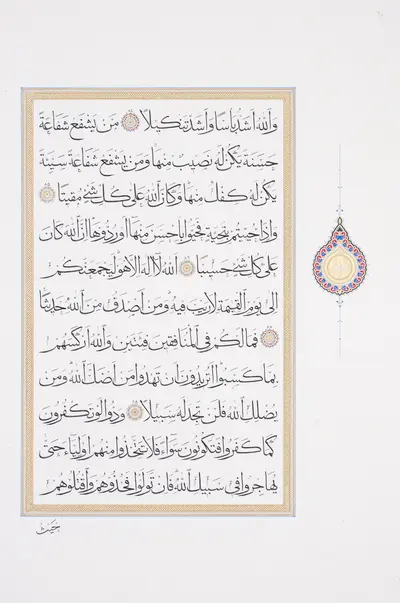 وَاللّٰهُ اَشَدُّ بَاْسًا وَاَشَدُّ تَنْكيلًا مَنْ يَشْفَعْ شَفَاعَةً
حَسَنَةً يَكُنْ لَهُ نَصيبٌ مِنْهَا وَمَنْ يَشْفَعْ شَفَاعَةً سَيِّئَةً
يَكُنْ لَهُ كِفْلٌ مِنْهَا وَكَانَ اللّٰهُ عَلٰى كُلِّ شَيْءٍ مُقيتًا
وَاِذَا حُيّيتُمْ بِتَحِيَّةٍ فَحَيُّوا بِاَحْسَنَ مِنْهَا اَوْ رُدُّوهَا اِنَّ اللّٰهَ كَانَ
عَلٰى كُلِّ شَيْءٍ حَسيبًا اَللّٰهُ لَا اِلٰهَ اِلَّا هُوَ لَيَجْمَعَنَّكُمْ
اِلٰى يَوْمِ الْقِيٰمَةِ لَا رَيْبَ فيهِ وَمَنْ اَصْدَقُ مِنَ اللّٰهِ حَديثًا
فَمَا لَكُمْ فِي الْمُنَافِقينَ فِئَتَيْنِ وَاللّٰهُ اَرْكَسَهُمْ
بِمَا كَسَبُوا اَتُريدُونَ اَنْ تَهْدُوا مَنْ اَضَلَّ اللّٰهُ وَمَنْ
يُضْلِلِ اللّٰهُ فَلَنْ تَجِدَ لَهُ سَبيلًا وَدُّوا لَوْ تَكْفُرُونَ
كَمَا كَفَرُوا فَتَكُونُونَ سَوَاءً فَلَا تَتَّخِذُوا مِنْهُمْ اَوْلِيَاءَ حَتّٰى
يُهَاجِرُوا في سَبيلِ اللّٰهِ فَاِنْ تَوَلَّوْا فَخُذُوهُمْ وَاقْتُلُوهُمْ
حَيْثُ